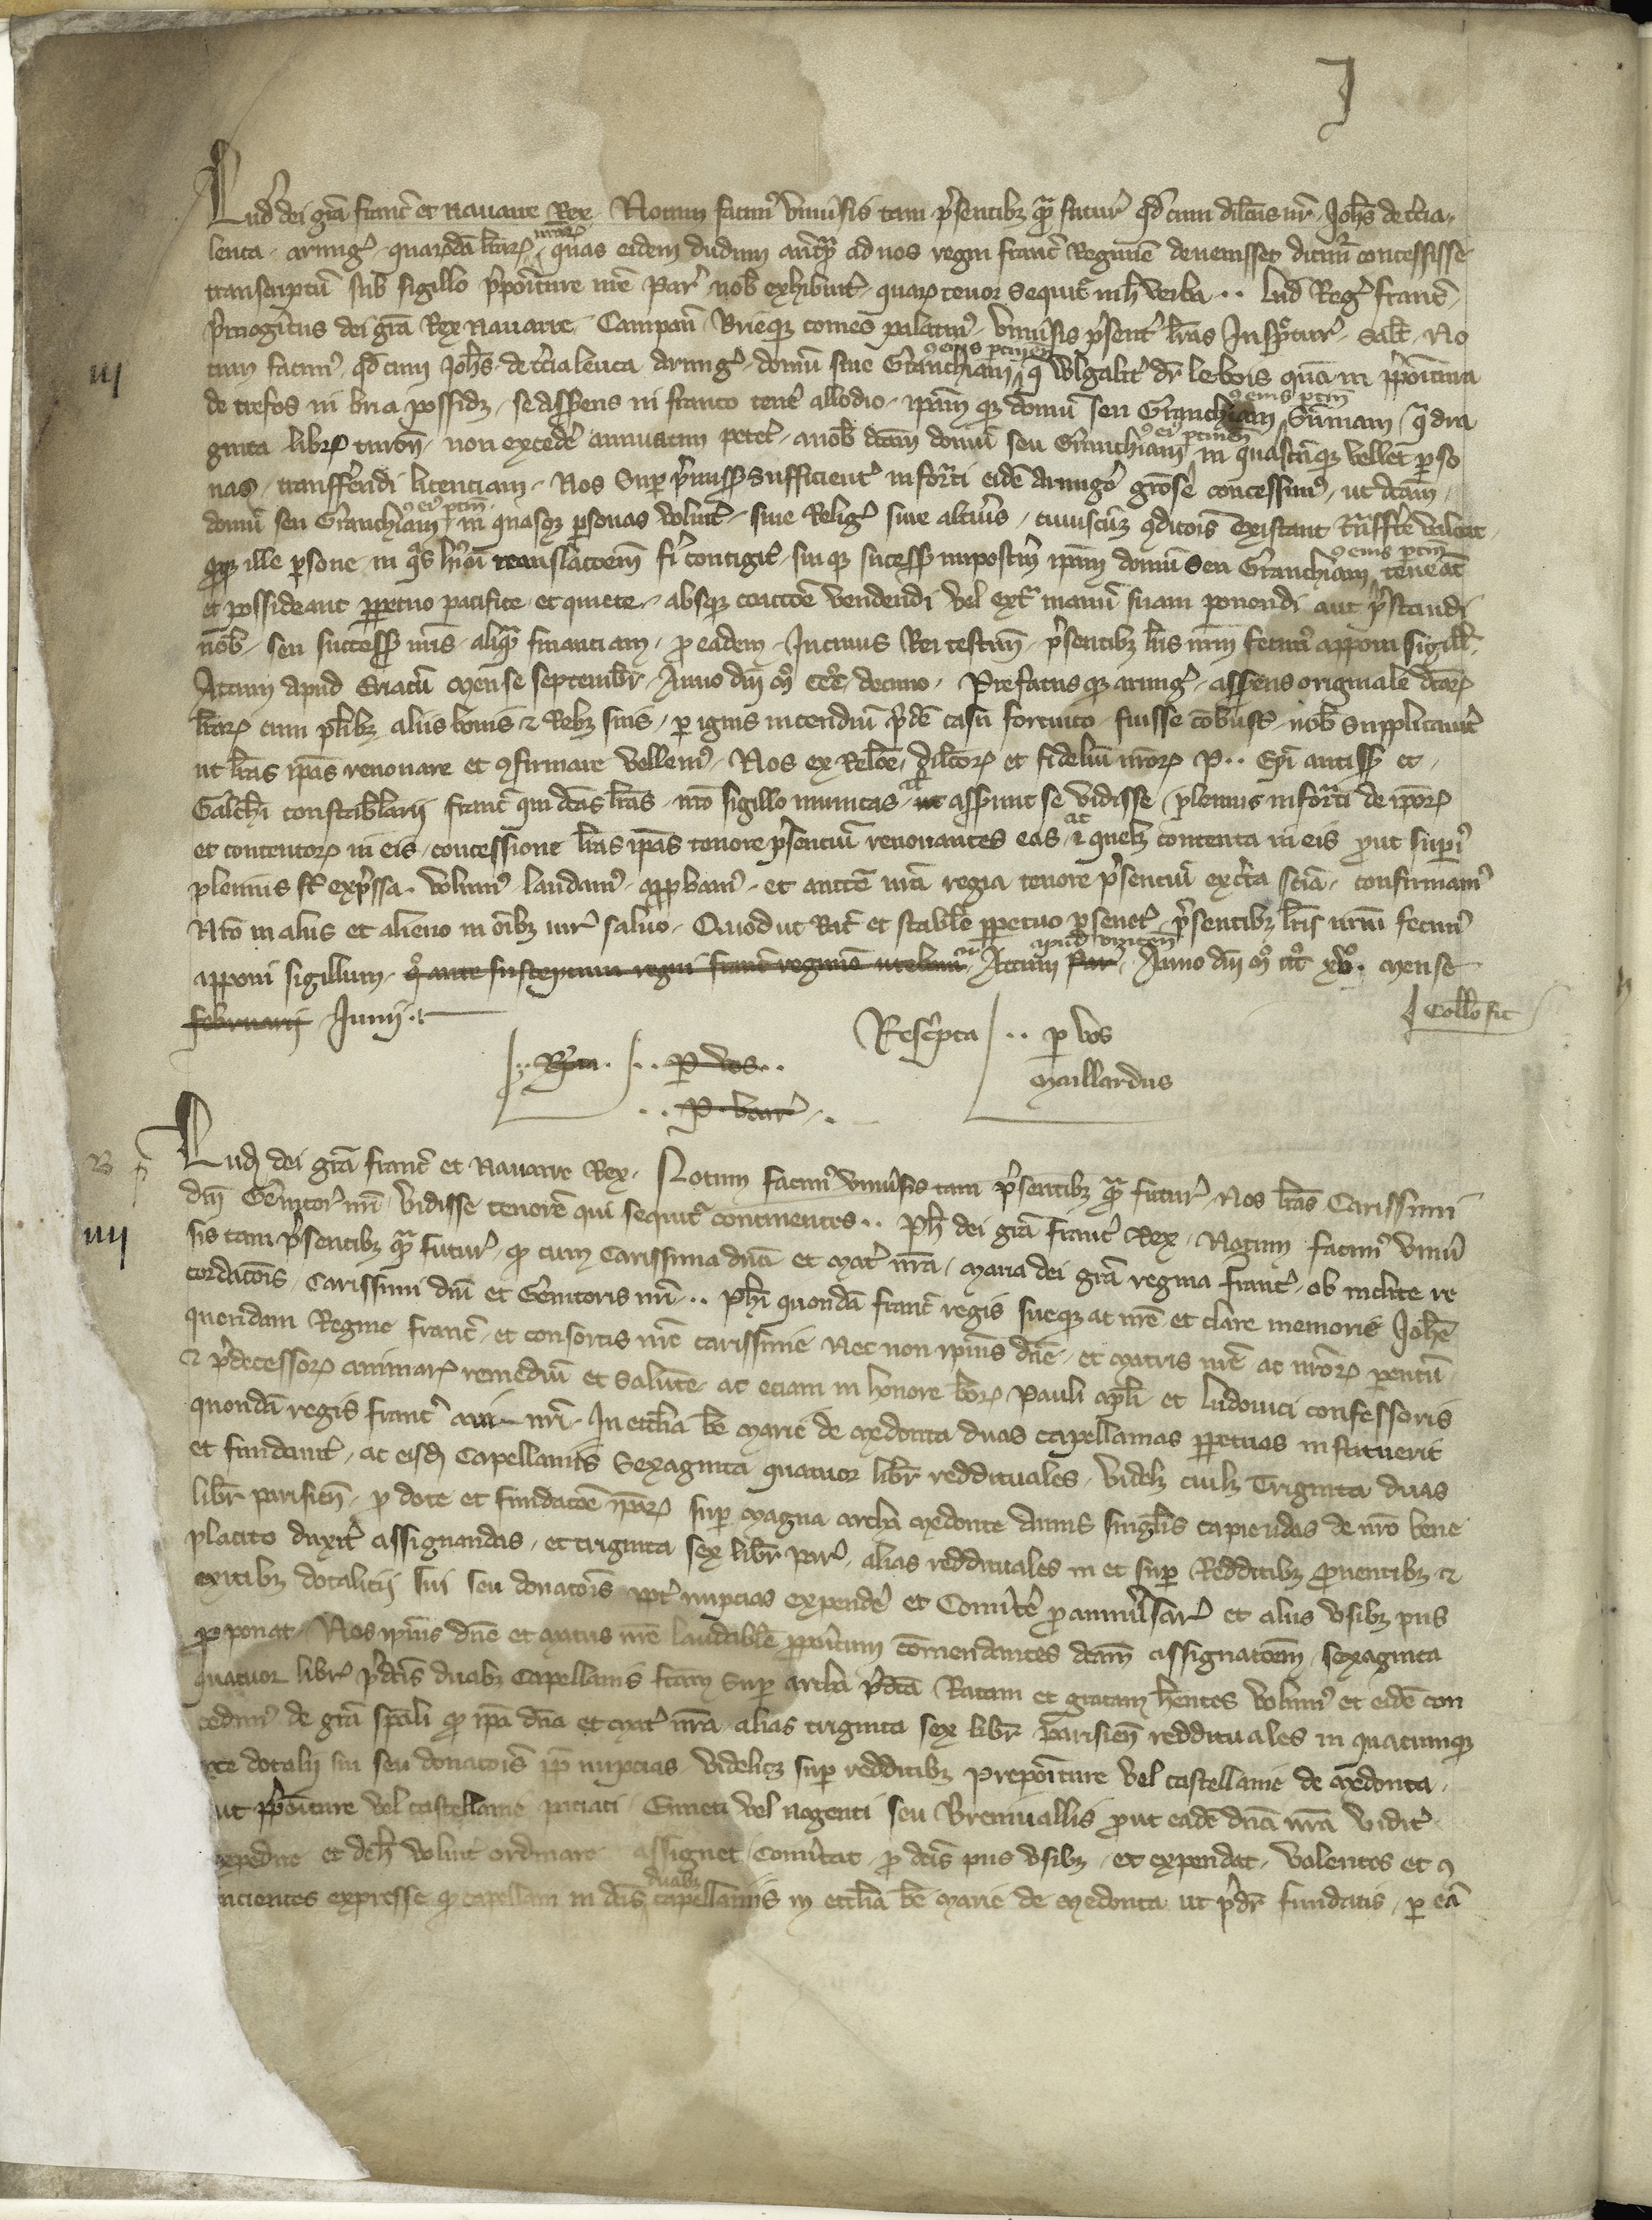 I
Lud dei gra franc et nauarre Rex Notum facim vniusis tam psentibz qm futur qd cum dilcus nr Johs de tcia
leuca armig quarumda lrarum nrarum quas eidem dudum antqm ad nos regni franc Regimen deuenisset dicimur concessisse
transcriptum sub sigillo ppoiture nre Par nob exhibuit quarum tenor sequit in h verba .. Lud Reg franc
pmogitus dei gra Rex nauarre Campan Brieqz comes palatin vniusis psentes lras Inspcturis salt No
iij
tum facim qd cum Johs de tcia leuca armig domum siue Granchiam cu eius ptinen q wlgalit dr le bois quam in ppoitura
de trefos in bria possidz se assens in franco tene allodio ipam qz domu seu Granchiam cu eius ptin Summam qdra
ginta librarum turon non excede annuatim petet a nob dcam domu seu Granchiam cu ei ptinen in quascuqz vellet perso
nas transferendi licenciam Nos Sup pmiss sufficient informati eide Armigo grose concessim ut dcam
domu seu Granchiam cu ei ptin in quasqz psonas voluit siue Relig siue altius cuiuscuqz condicois existant transferre valeat
qqz ille persone in qs hmoi translacoem fi contigit sui qz success imposterum ipam domu seu Granchiam cu eius ptin teneat
et possideant perpetuo pacifice et quiete absqz coaccoe vendendi vel ext manu suam ponendi aut pstandi
nob seu success nris aliqm financiam pro eadem In cuius Rei testim psentibz lris nrm fecim apponi sigill
Actum apud Criacu mense septembr Anno dni m ccc decimo Prefatus qz armig assens originale dcarum
lrarum cum plibz aliis bonis et Rebz suis per ignis incendiu pde casu fortuito fuisse combust nob supplicauit
ut lras ipas renouare et confirmare vellem Nos ex Relcoe dilcorum et fidelium nrorum P .. Epi antiss et
Galchi constabularii franc qui dcas lras nro sigillo munitas ut assunt se vidisse plenius informati de ipsorum
et contentorum in eis concessione lras ipas tenore psentium renouantes eas ac et quelz contenta in eis prout superi
plenius st expssa volum laudam approbam et auctte nra regia tenore psentium ex certa scia confirmam
Nro in aliis et alieno in oibz iure saluo Quod ut Rat et stabile perpetuo perseueret psentibz lris nrm fecim
apponi sigillum quo ante susceptum regni franc regimen utebamur Actum Par apud vicen Anno dni m ccc xv mense
februarij Junij
Collo fit
Rescpta .. p vos
Maillardus
.. Rpta .. p vos ..
.. P. barr ..
Lud dei gra franc et nauarre Rex Notum facim vniusis tam psentibz qm futur Nos lras Carissimi
dni Genitor nri vidisse tenorem qui sequit continentes .. Ph dei gra franc Rex Notum facim vniu
iiij
sis tam psentibz qm futur qd cum Carissima dna et mat nra Maria dei gra regina franc ob inclite re
cordacois Carissimi dni et Genitoris nri .. Phi quonda franc regis sueqz ac nre et clare memorie Johe
quondam Regine franc et consortis nre carissime Nec non ipius dne et matris nre ac nrorum parentum
et pdecessorum animarum remedium et salute ac eciam in honore beatorum Pauli apli et ludouici confessoris
quonda regis franc aui nri In ecclia be marie de medonta duas capellanias perpetuas instituerit
et fundauit ac eisd Capellaniis Sexaginta quatuor libr reddituales videlz cuilz Triginta duas
libr parisien pro dote et fundacoe ipsarum sup magna archa medonte Annis singulis capiendas de nro bene
placito duxit assignandas et triginta sex libr par alias reddituales in et sup Redditibz prouentibz et
exitibz dotalicij sui seu donacois ppt nupcias expende et Commitere pro anniversar et aliis vsibz piis
pponat Nos ipius dne et matris nre laudabile propoitum commendantes dcam assignacoem sexaginta
quatuor libr pdcis duabz Capellaniis fcam sup archa pdca Ratam et gratam hentes volum et eide con
cedim de gra spali qd ipa dna et mat nra alias triginta sex libr Parisien reddituales in quacumqz
rte dotalij sui seu donacois ppt nupcias videlicz sup redditibz prepoiture vel castellanie de medonta
ut ppoiture vel castellanie piciaci Enneti vel nogenti seu Breuiuallis prout eade dna nra vidit
expedire et deh voluit ordinare assignet comittat pro dcis piis vsibz et expendat volentes et con
ncientes expresse qd capellani in dcis duabz capellaniis in ecclia be marie de medonta ut pdr fundatis per ea